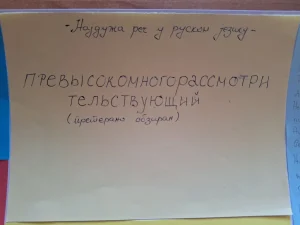 - Најдужа реч у руском језику -
ПРЕВЫСОКОМНОГОРАССМОТРИ
ТЕЛЬСТВУЮЩИЙ
(претерано обзиран)